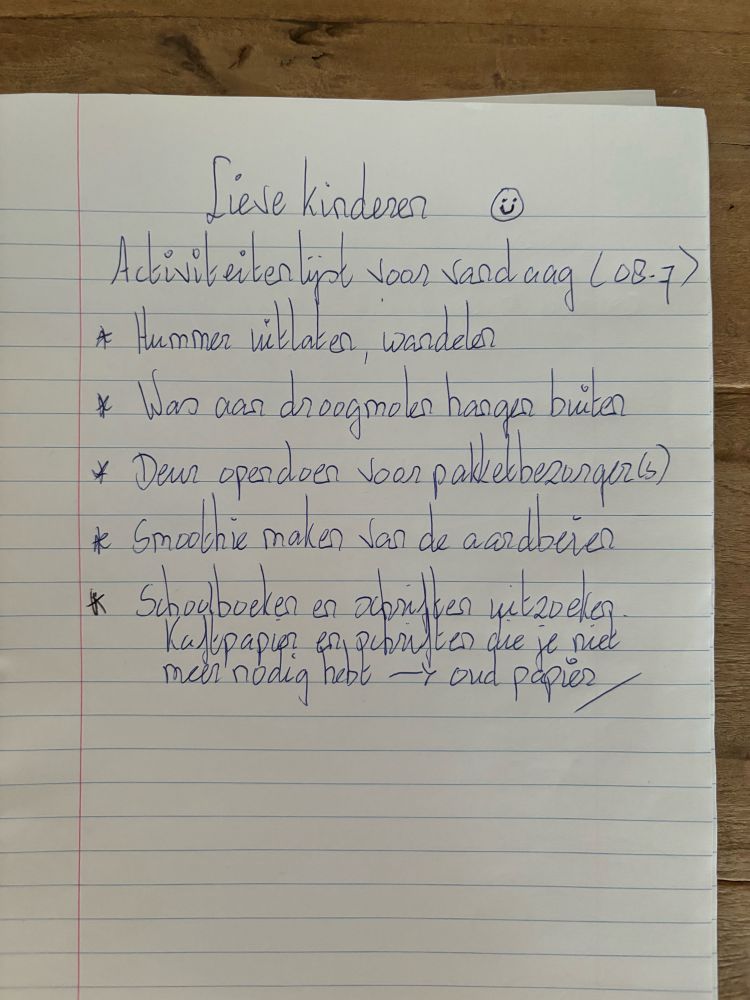 Lieve kinderen
Activiteitenlijst voor vandaag (08-7)
* Hummer uitlaten, wandelen
* Was aan droogmolen hangen buiten
* Deur opendoen voor pakketbezorger(s)
* Smoothie maken van de aardbeien
* Schoolboeken en schriften uitzoeken.
Kaftpapier en schriften die je niet
meer nodig hebt → oud papier